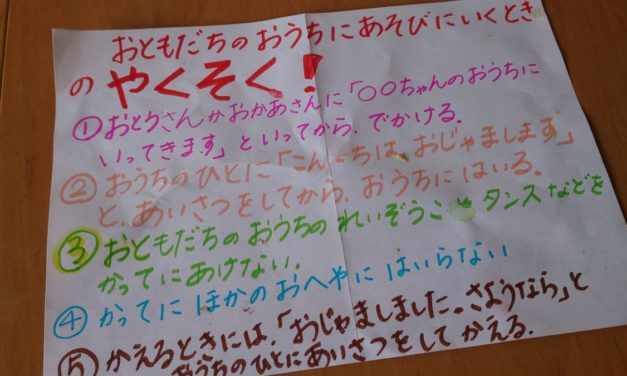 おともだちのおうちにあそびにいくとき
の やくそく!
① おとうさんかおかあさんに「〇〇ちゃんのおうちに
いってきます」といってから、でかける。
② おうちのひとに「こんにちは、おじゃまします」
と、あいさつをしてから、おうちにはいる。
③ おともだちのおうちのれいぞうこやタンスなどを
かってにあけない。
④ かってにほかのおへやにはいらない
⑤ かえるときには、「おじゃましました。さようなら」と
おうちのひとにあいさつをしてかえる。